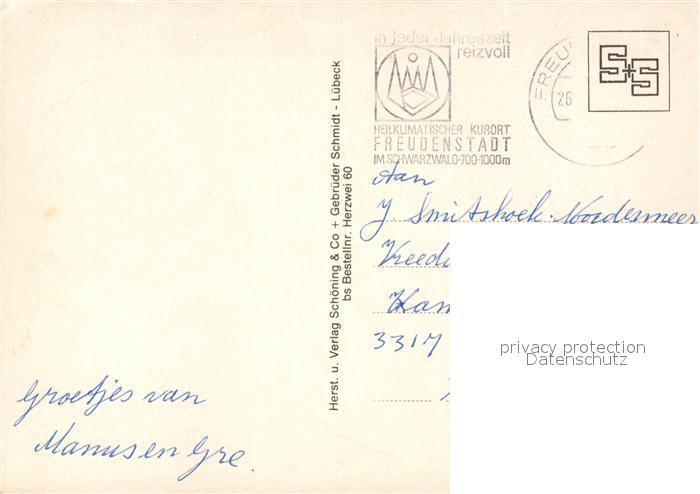 in jeder Jahreszeit
reizvoll
HEILKLIMATISCHER KURORT
FREUDENSTADT
IM SCHWARZWALD-700-1000m
FREU
26
S+S
Herst. u. Verlag Schöning & Co + Gebrüder Schmidt - Lübeck
bs Bestellnr. Herzwei 60
Aan
J. Smitshoek-Noordermeer
Vreed
Kam
3317
privacy protection
Datenschutz
Groetjes van
Manus en Gre.